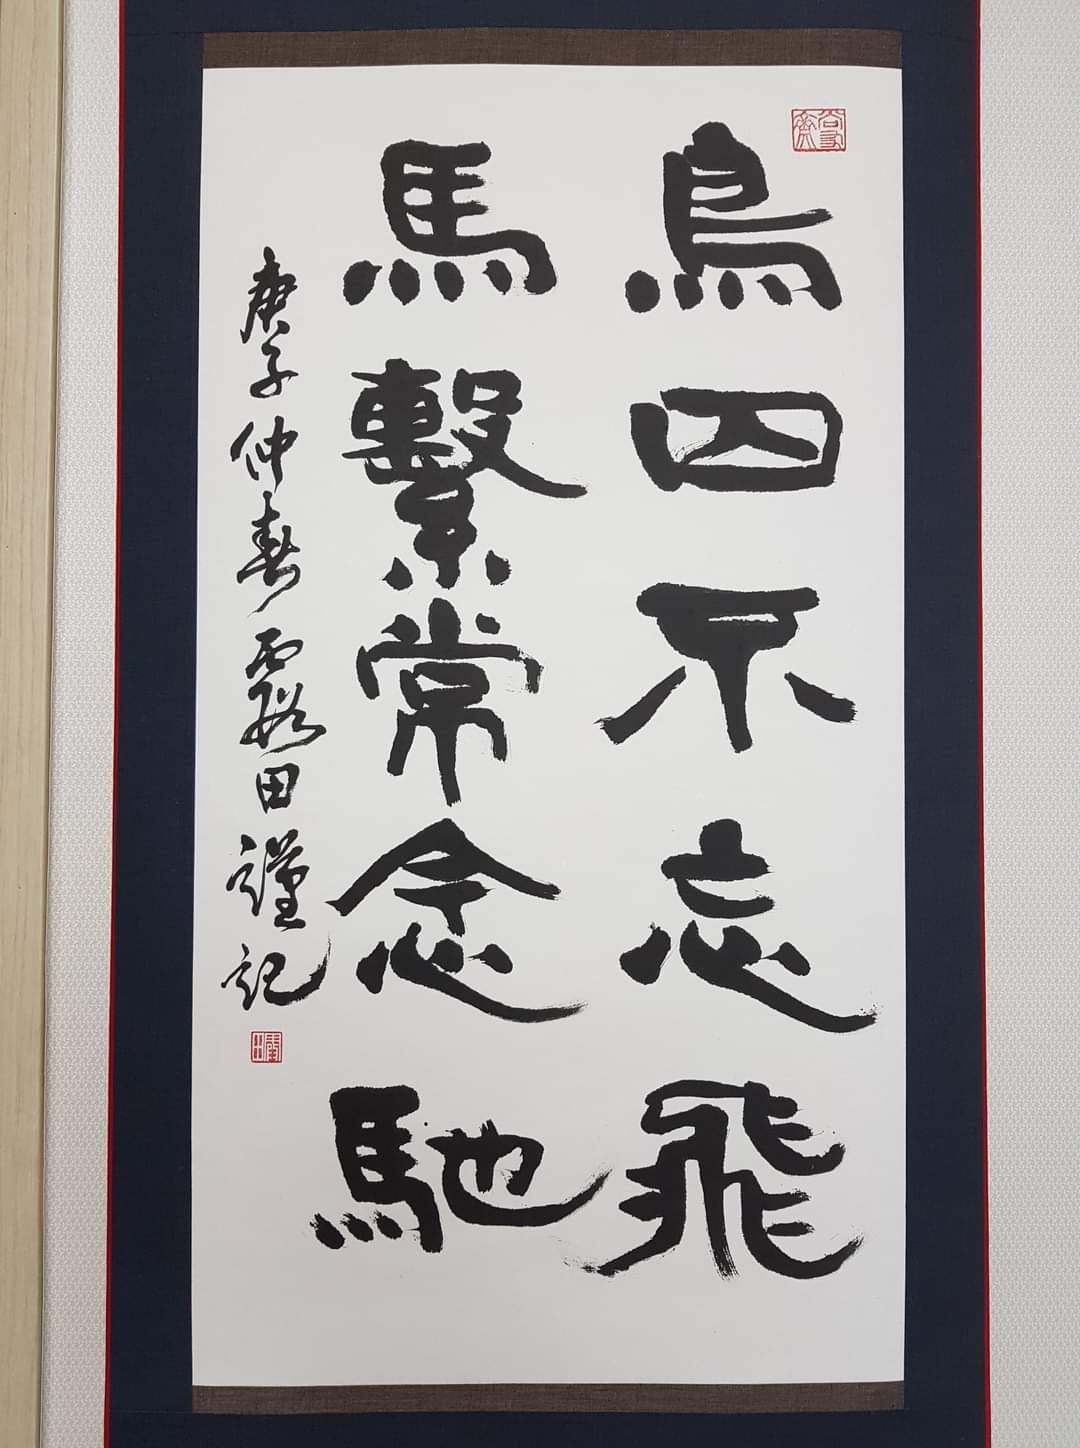 鳥囚不忘飛
馬繫常念馳
庚子仲春露田謹記